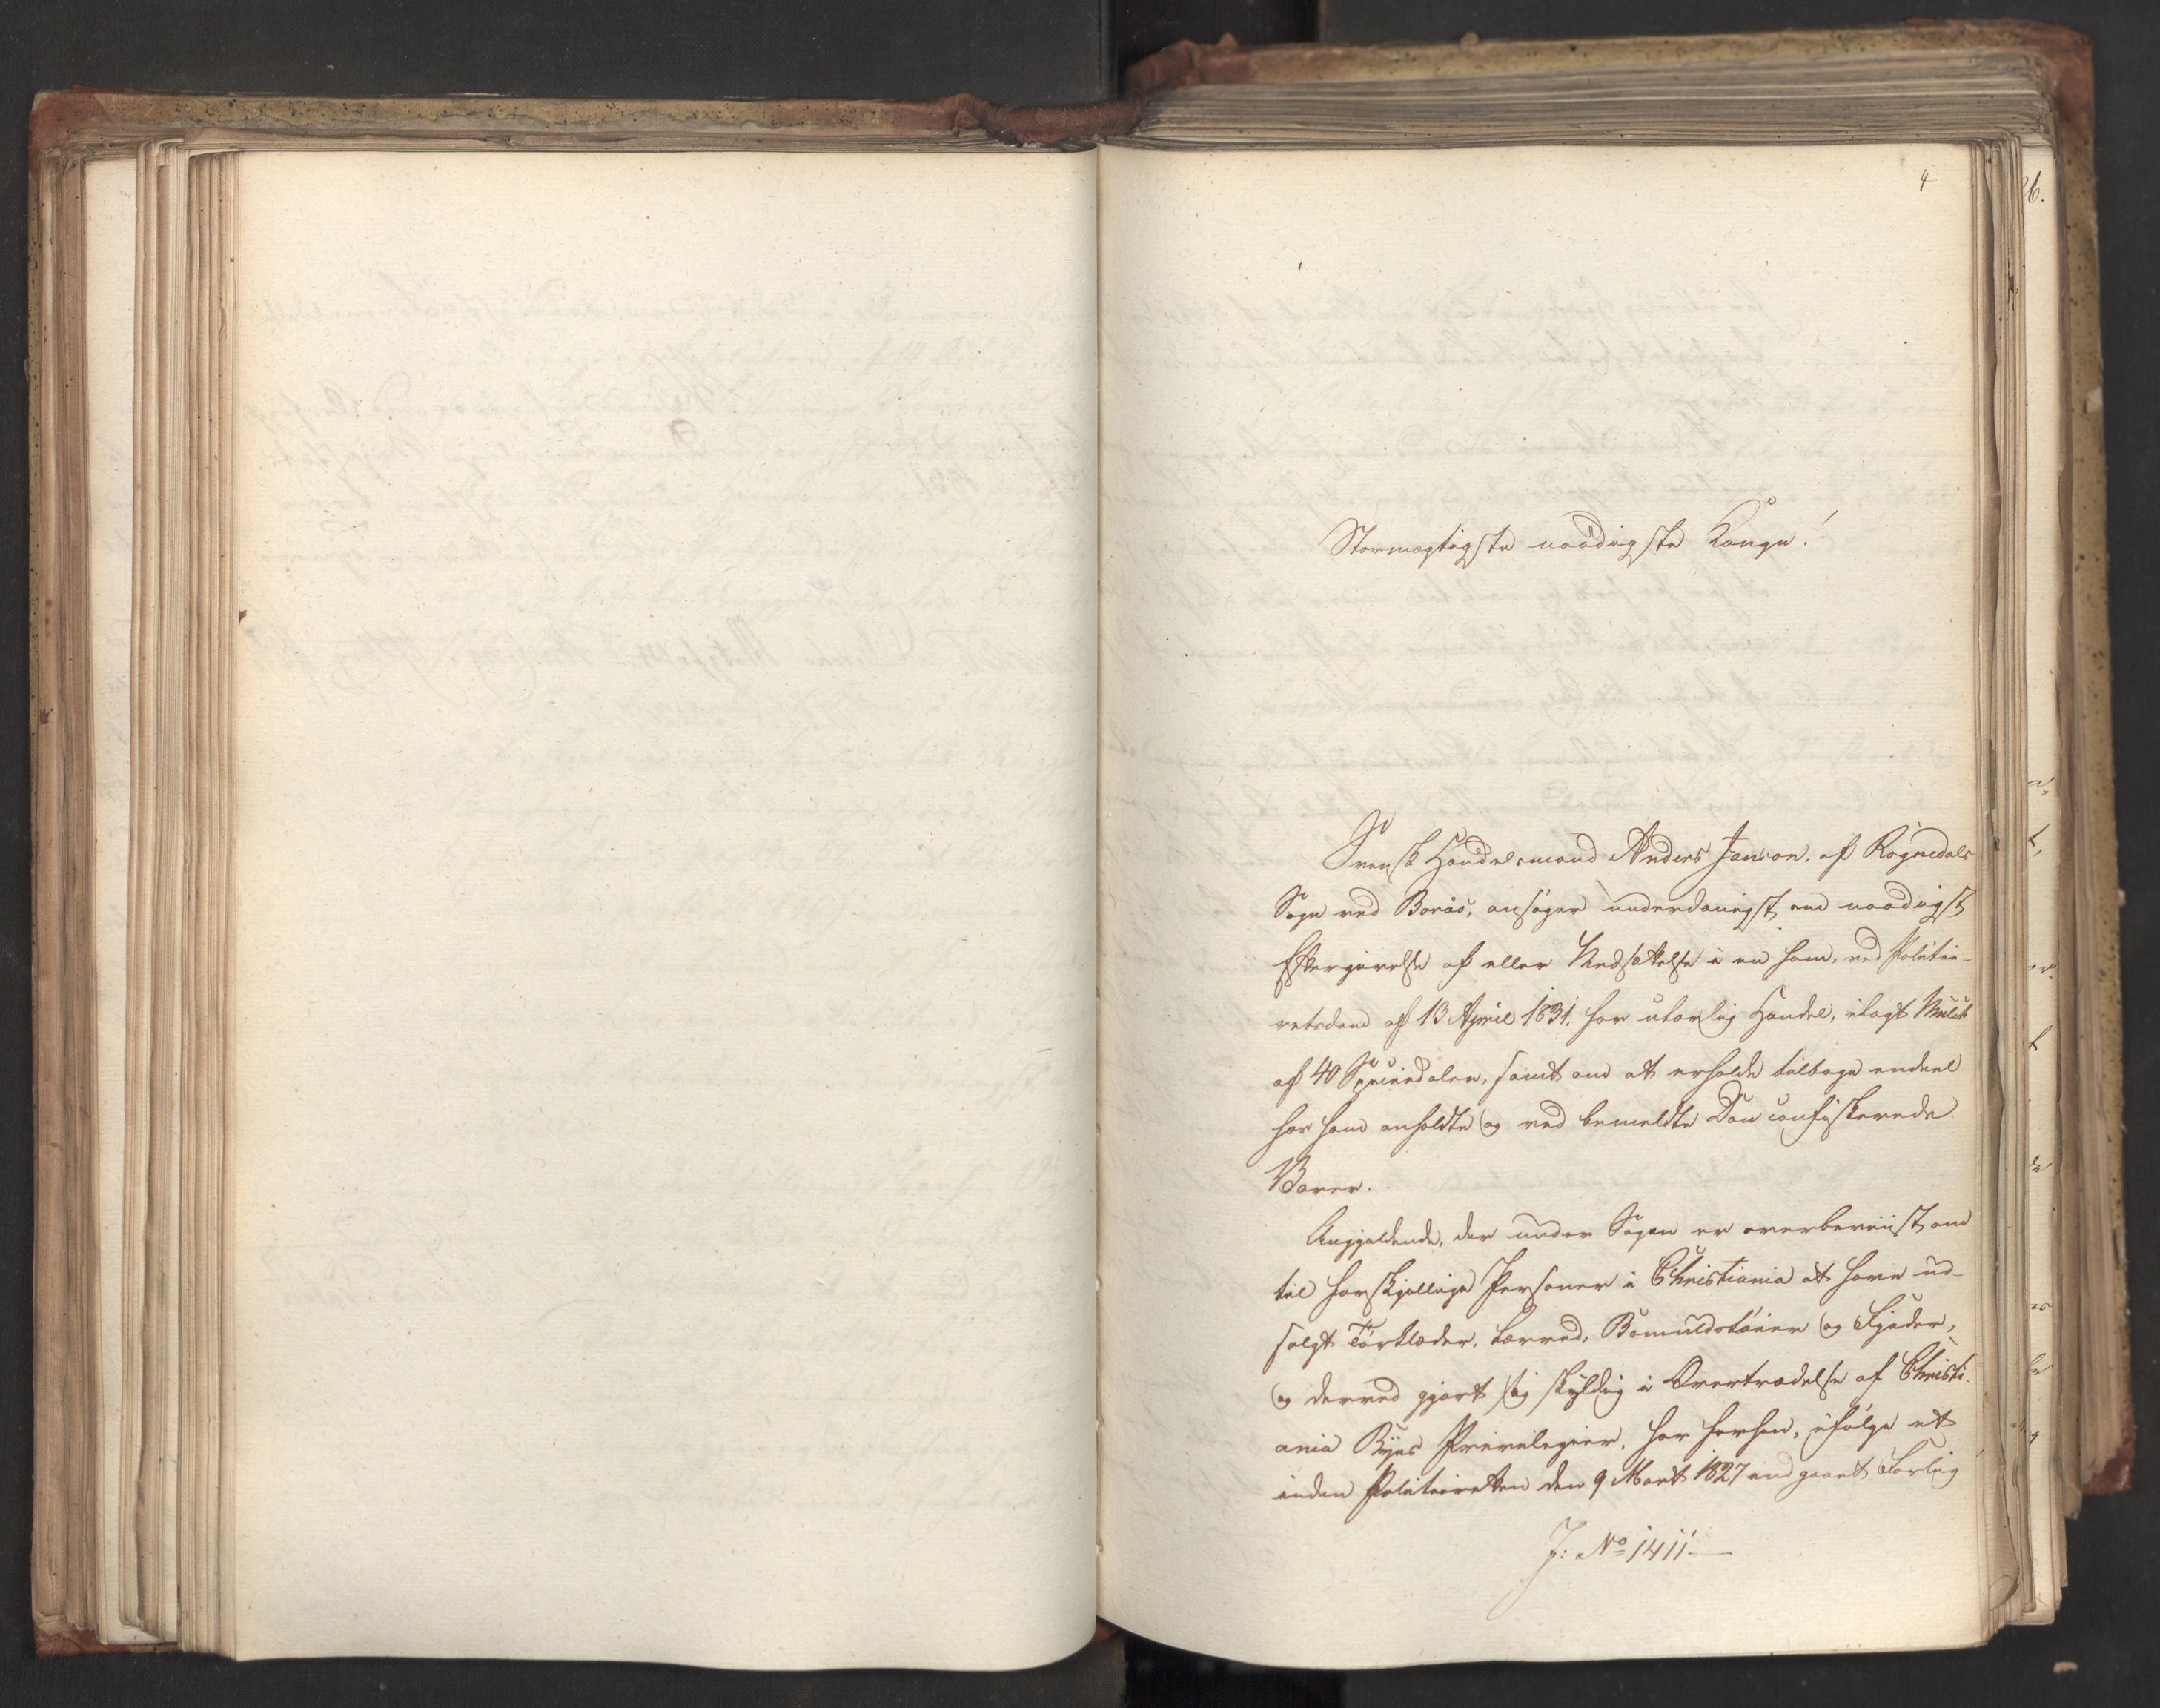 4
Stormægtigste naadigste Konge!
Svensk Handelsmand Anders Janson, af Rögnedals
Sogn ved Borås, ansøger underdanigst om naadigst
Eftergivelse af eller Nedsættelse i en ham, ved Politie-
retsdom af 13 April 1831, for ulovlig Handel, ilagt Mulct
af 40 Speciedaler, samt om at erholde tilbage endeel
hos ham anholdte og ved bemeldte Dom confiskerede
Varer.
Angjældende, der under Sagen er overbeviist om
til forskjellige Personer i Christiania at have ud-
solgt Tørklæder, Lærred, Bomuldstøier og Fjæder,
og derved gjort sig skyldig i Overtrædelse af Christi-
ania Byes Privilegier, har forhen, ifølge et
inden Politieretten den 9 Mart 1827 indgaaet Forlig
J: No 1411